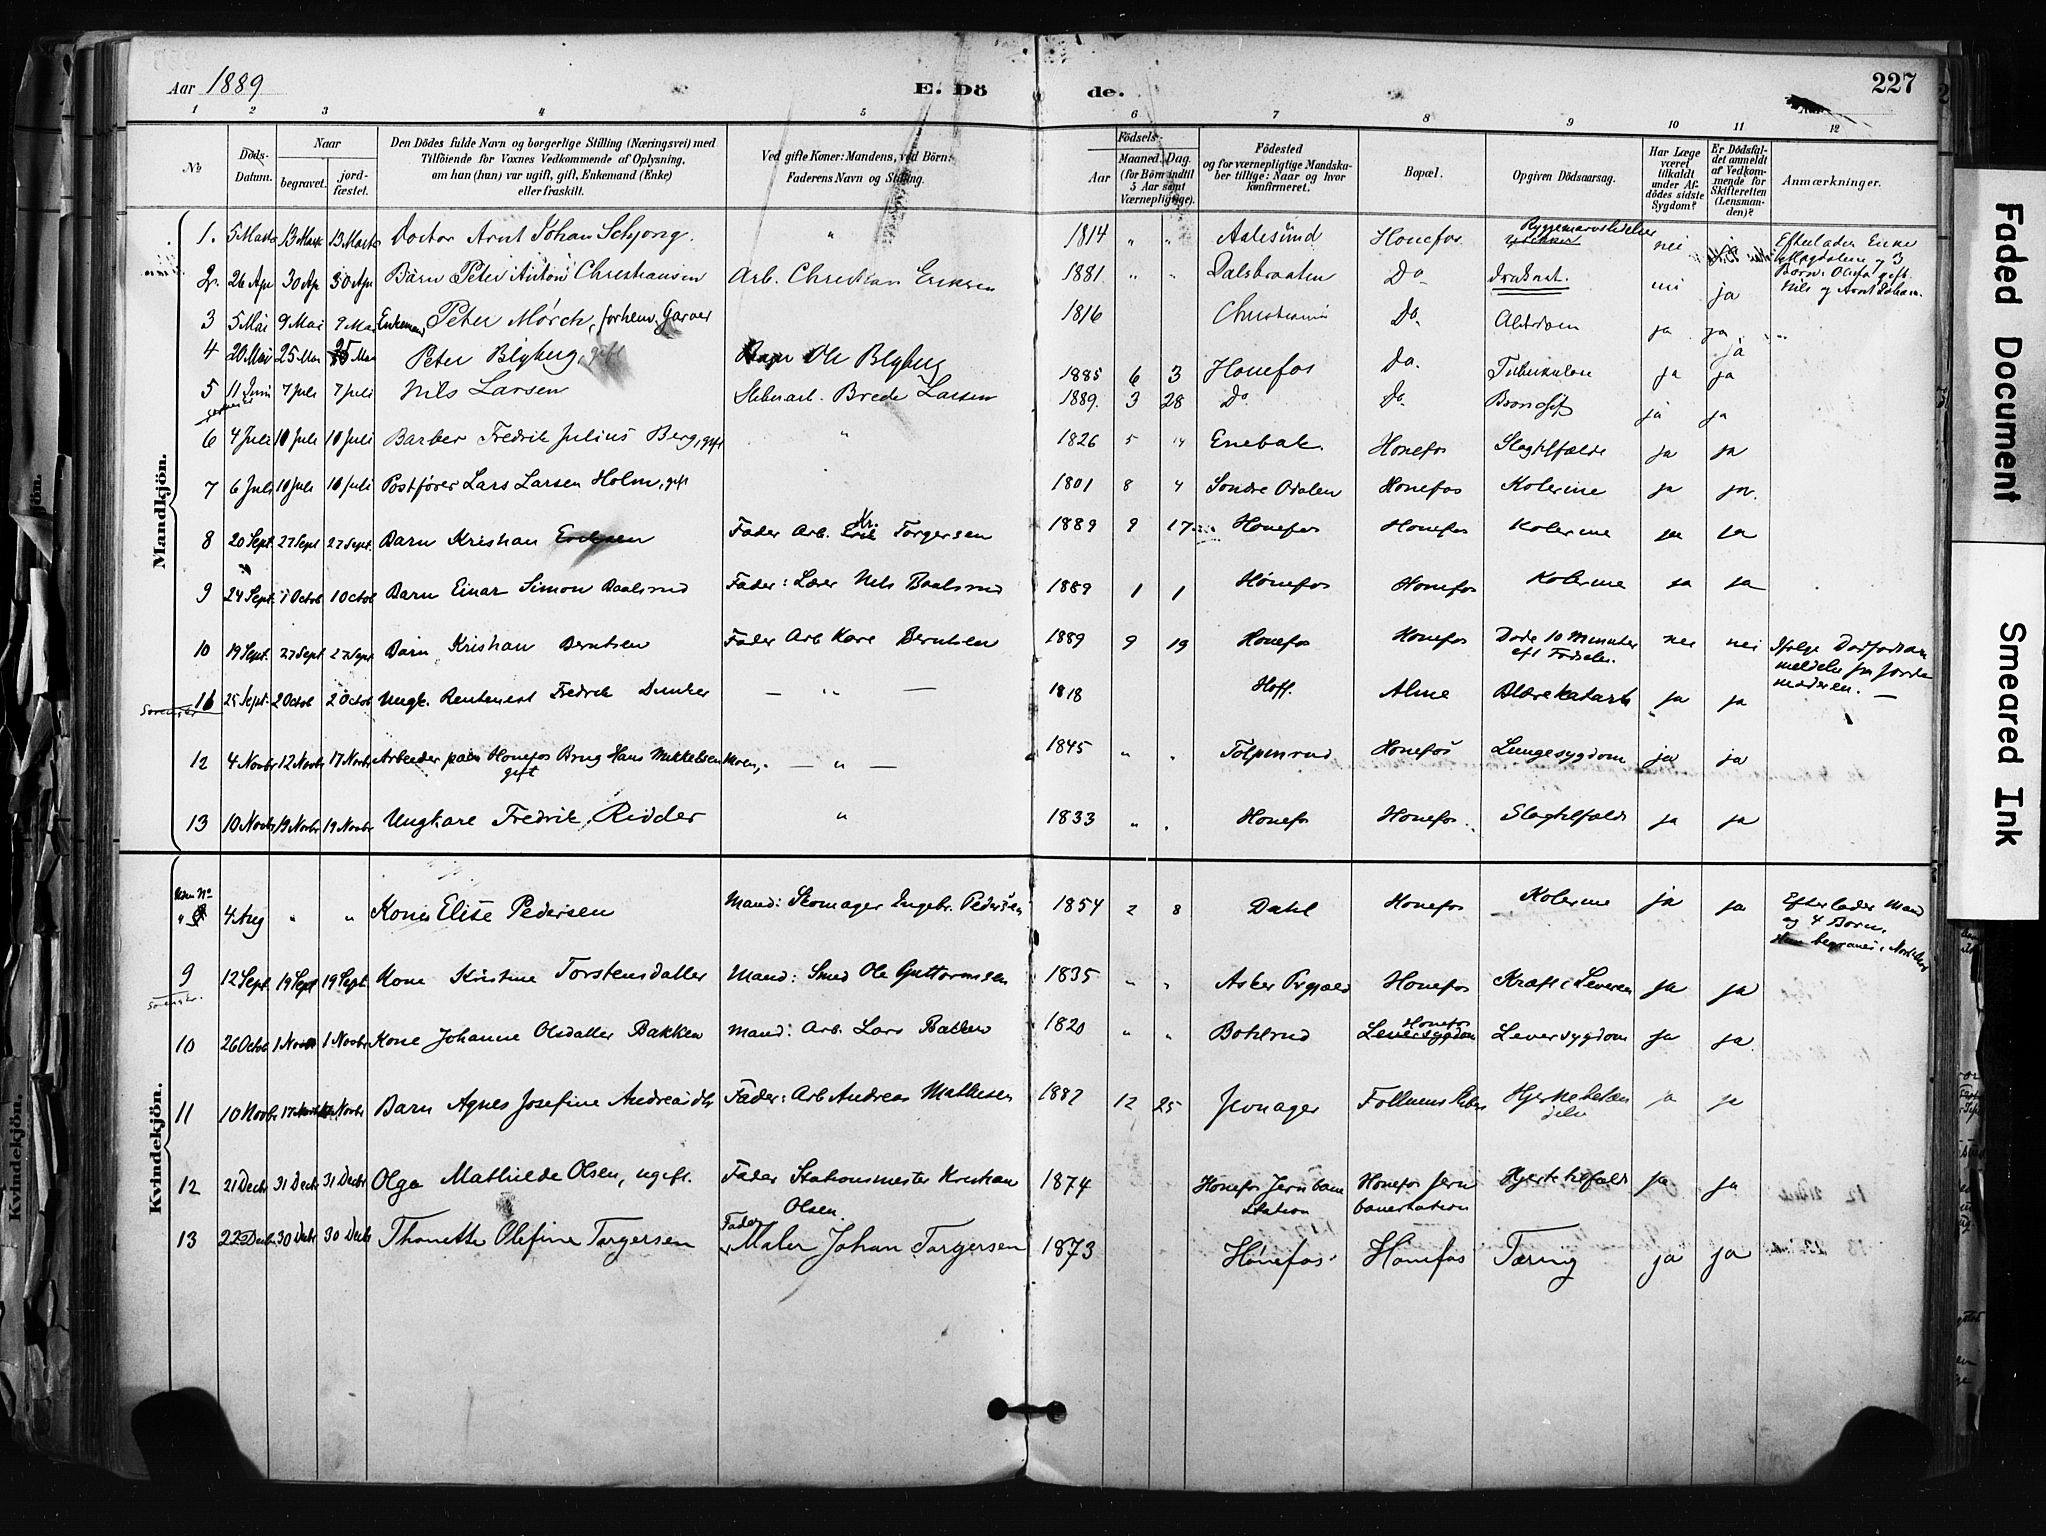 Aar 1889
E. Döde.
227
1 2 3 4 5 6 7 8 9 10 11 12
No
Döds-Datum.
Naar
begravet.
jordfæstet.
Den Dödes fulde Navn og borgerlige Stilling (Næringsvei) med
Tilföiende for Voxnes Vedkommende af Oplysning,
om han (hun) var ugift, gift, Enkemand (Enke)
eller fraskilt.
Ved gifte Koner: Mandens, ved Börn:
Faderens Navn og Stilling.
Födsels-
Aar
Maaned. Dag.
(for Börn indtil
5 Aar samt
Værnepligtige).
Födested
og for værnepligtige Mandska-
ber tillige: Naar og hvor
konfirmeret.
Bopæl.
Opgiven Dödsaarsag.
Har Læge
været
tilkaldt
under Af-
dödes sidste
Sygdom?
Er Dödsfal-
det anmeldt
af Vedkom-
mende for
Skifteretten
(Lensman-
den)?
Anmærkninger.
Mandkjön.
1. 5 Marts 13 Marts 13 Marts Doctor Arnt Johan Schjong. " 1814 " " Aalesund Honefos Rygmarvslidelse nei ja Efterlader Enke Magdalene og 3 Börn: gift. Nils og Arnt Johan.
2. 26 Apr 30 Apr 30 Apr Barn Peter Anton Christiansen Arb. Christian Eriksen 1881 " " Dalsbraaten Do druknet. nei ja
3 5 Mai 9 Mai 9 Mai Enkemand Peter Mörch, forhenv. Garver 1816 Christiania Do. Alderdom ja ja "
4 20 Mai 25 Mai 25 Mai Peter Blyberg, gift Ole Blyberg 1885 6 3 Honefos Do. Tuberkulose ja ja ja
5 11 Juni 7 Juli 7 Juli Nils Larsen Brede Larsen 1889. 3 28 Do Do. ja ja
6 4 Juli 10 Juli 10 Juli Barber Fredrik Julius Berg, gift " 1826 5 14 Enebak. Honefos Slagtilfælde ja ja
7 6 Juli 10 Juli 10 Juli Postförer Lars Larsen Holm, gift 1801 8 4 Sondre Odalen Honefos Kolerine ja ja.
8 20 Sept. 27 Sept 27 Sept. Barn Kristian Eriksen Fader Arb. Erik Kr. Torgersen 1889 9 17 Honefos Honefos Kolerine ja ja
9 24 Sept. 1 Octob 1 Octob Barn Einar Simon Baalsrud Fader: Lærer Nils Baalsrud 1889 1 1 Hönefos Honefos Kolerine ja ja
10 19 Sept. 27 Sept 27 Sept Barn Kristian Berntsen Fader Arb Kare Berntsen 1889 9 19 Honefos Honefos Döde 10 Minutter eft Födselen. nei nei Ifölge Dödfödsanmeldelse fra Jordemoderen. —
11 25 Sept. 2 Octob 2 Octob Ungk. Rentenist Fredrik Dunker — " — 1818 Hoff. Alme Blærekatarh ja ja
12 4 Novbr 12 Novbr 17 Novbr Arbeider paa Honefos Brug Hans Mikkelsen Moen, gift — " — 1845 " " Tolpinrud Honefos Lungesygdom ja ja
13 10 Novbr 19 Novbr 19 Novbr Ungkare Fredrik Ridder " 1833 " " Honefos Honefos. Slagtilfald ja ja
Kvindekjön.
Uden No " 4 Aug " " Kone Elise Pedersen Mand: Skomager Ingebr. Pedersen 1854 2 8 Dahl Honefos Kolerine ja ja Efterlader Mand og 4 Börn.
9 12 Sept. 19 Sept 19 Sept. Kone Kristine Torstensdatter Mand: Smed Ole Guttormsen 1835 " " Asker Prgjæld Honefos Kræft i Leveren ja ja
10 26 Octbr 1 Novbr 1 Novbr Kone Johanne Olsdatter Bakken Mand: Arb. Lars Bakken 1820 " " Bohlrud Leversygdom Honefos Leversygdom ja ja.
11 10 Novbr 17 Novbr Novbr Barn Agnes Josefine Andreasdtr Fader: Arb Andreas Mathisen 1882 12 25 Jevnager Follums ja ja
12 21 Decbr 31 Decbr 31 Decbr Olga Mathilde Olsen, ugift. Fader Stationsmester Kristian Olsen. 1874 Honefos Jernbane Station Honefos Jernbanestation Hjertetilfald ja ja
13 22 Decbr 30 Decbr 30 Decbr Thonette Olefine Torgersen Fader Maler Johan Torgersen 1873 Hönefos Hönefos Tæring ja ja
Faded Document
Smeared Ink
Kvindekjön.